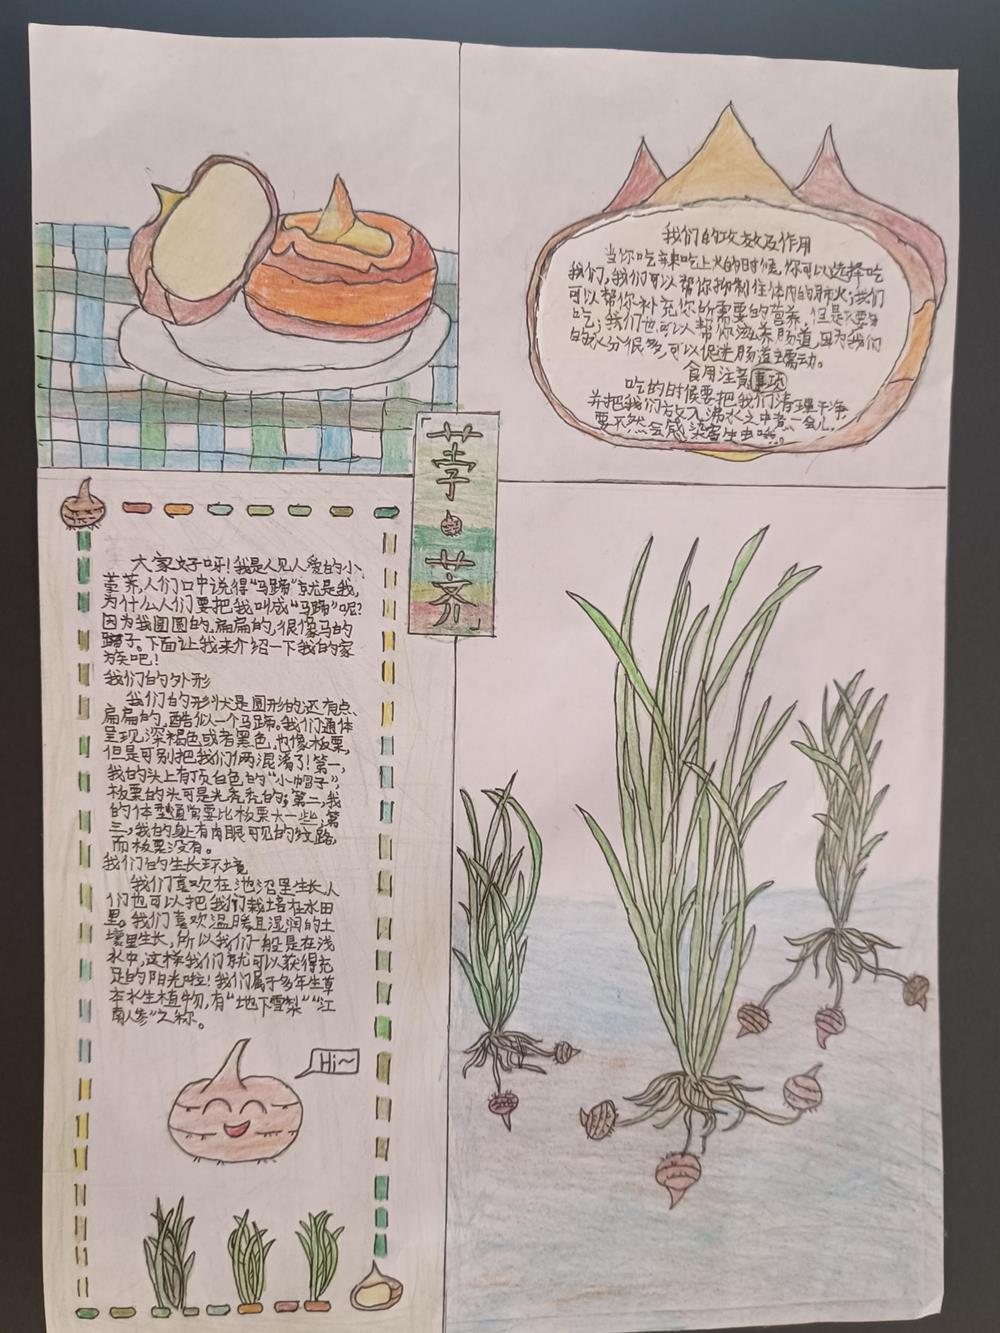 我们的攻效及作用
当你吃辣吃上火的时候,你可以选择吃
我们,我们可以帮你抑制住体内的肺火;我们
可以帮你补充你所需要的营养,但是不要多
吃;我们也可以帮你滋养肠道,因为我们
的水分很多,可以促进肠道蠕动。
食用注意事项
吃的时候要把我们清理干净,
并把我们放入沸水之中煮一会儿,
要不然会感染寄生虫哦。
「荸荠」
大家好呀!我是人见人爱的小
荸荠,人们口中说得“马蹄”就是我,
为什么人们要把我叫成“马蹄”呢?
因为我圆圆的,扁扁的,很像马的
蹄子。下面让我来介绍一下我的家
族吧!
我们的外形
我们的形状是圆形的,还有点
扁扁的,酷似一个马蹄。我们通体
呈现深褐色或者黑色,也像板栗,
但是可别把我们俩混淆了!第一,
我的头上有顶白色的“小帽子”,
板栗的头可是光秃秃的;第二,我
的体型通常要比板栗大一些;第
三,我的身上有肉眼可见的纹路,
而板栗没有。
我们的生长环境
我们喜欢在池沼里生长,人
们也可以把我们栽培在水田
里。我们喜欢温暖且湿润的土
壤里生长,所以我们一般是在浅
水中,这样我们就可以获得充
足的阳光啦!我们属于多年生草
本水生植物,有“地下雪梨”“江
南人参”之称。
Hi~